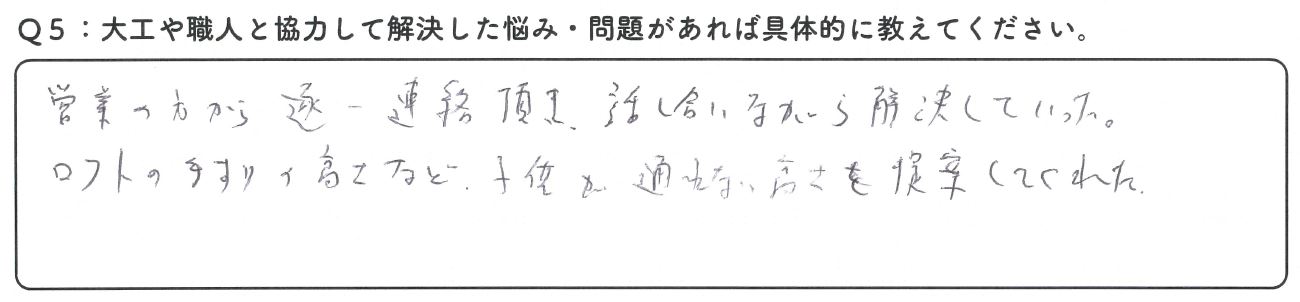 Q5：大工や職人と協力して解決した悩み・問題があれば具体的に教えてください。
営業の方から逐一連絡頂き、話し合いながら解決していった。
ロフトの手すりの高さなど、子供が通れない高さを提案してくれた。